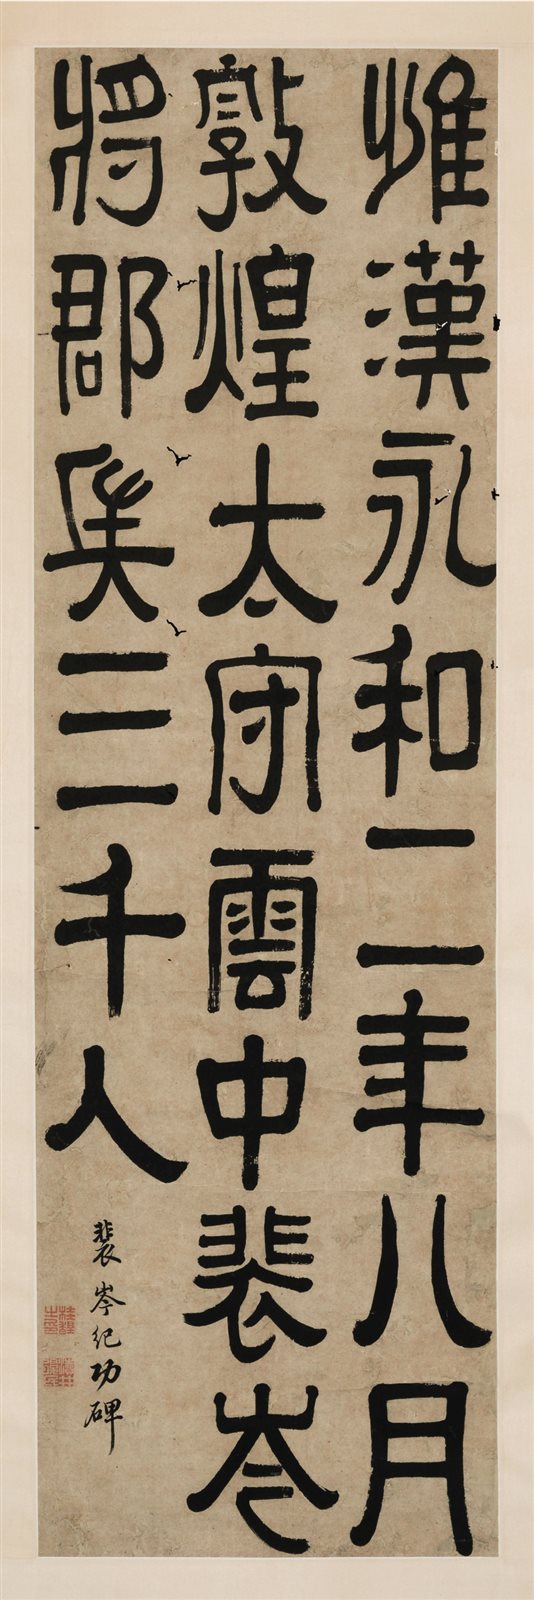 惟漢永和二年八月
敦煌太守雲中裴岑
將郡兵三千人
裴岑紀功碑
桂馥之印